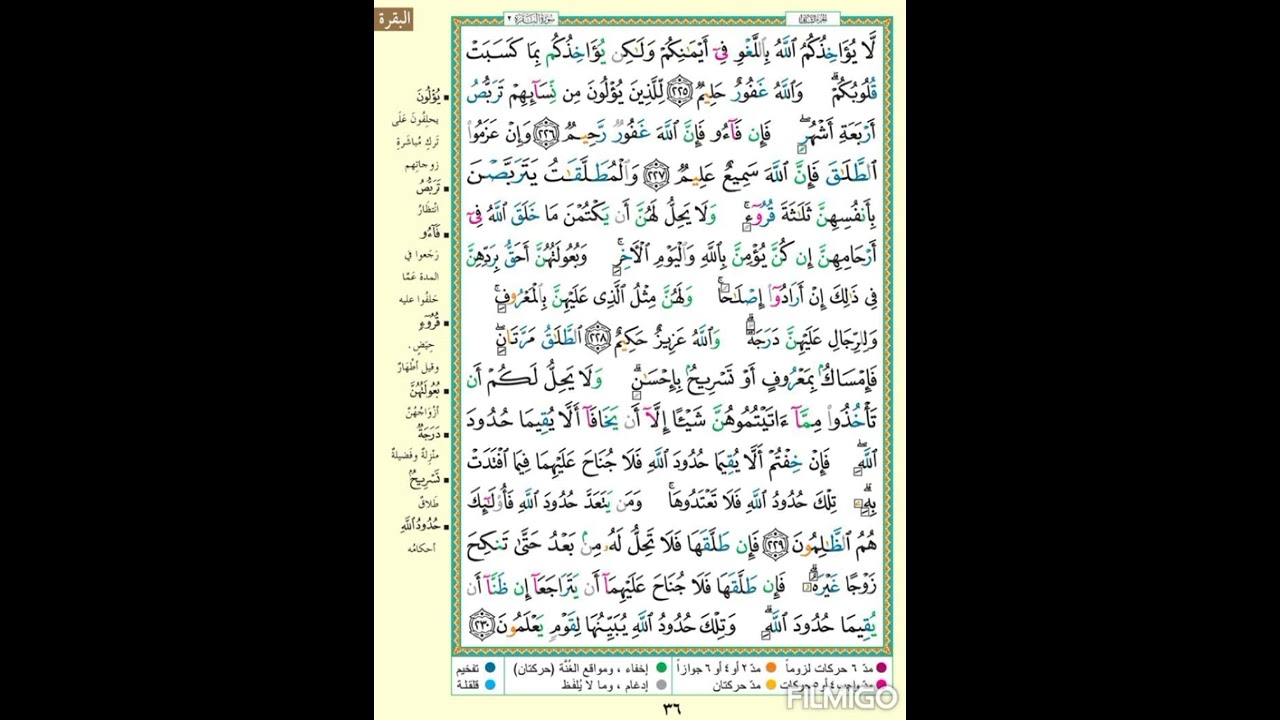 البقرة
سورة البقرة ٢
لَّا يُؤَاخِذُكُمُ اللَّهُ بِاللَّغْوِ فِىٓ أَيْمَـٰنِكُمْ وَلَـٰكِن يُؤَاخِذُكُم بِمَا كَسَبَتْ
قُلُوبُكُمْ ۗ وَاللَّهُ غَفُورٌ حَلِيمٌ ٢٢٥ لِّلَّذِينَ يُؤْلُونَ مِن نِّسَآئِهِمْ تَرَبُّصُ
أَرْبَعَةِ أَشْهُرٍ ۖ فَإِن فَآءُو فَإِنَّ اللَّهَ غَفُورٌ رَّحِيمٌ ٢٢٦ وَإِنْ عَزَمُوا
الطَّلَـٰقَ فَإِنَّ اللَّهَ سَمِيعٌ عَلِيمٌ ٢٢٧ وَالْمُطَلَّقَـٰتُ يَتَرَبَّصْنَ
بِأَنفُسِهِنَّ ثَلَـٰثَةَ قُرُوٓءٍ ۚ وَلَا يَحِلُّ لَهُنَّ أَن يَكْتُمْنَ مَا خَلَقَ اللَّهُ فِىٓ
أَرْحَامِهِنَّ إِن كُنَّ يُؤْمِنَّ بِاللَّهِ وَالْيَوْمِ الْـَٔاخِرِ ۚ وَبُعُولَتُهُنَّ أَحَقُّ بِرَدِّهِنَّ
فِى ذَٰلِكَ إِنْ أَرَادُوٓا إِصْلَـٰحًا ۚ وَلَهُنَّ مِثْلُ الَّذِى عَلَيْهِنَّ بِالْمَعْرُوفِ ۚ
وَلِلرِّجَالِ عَلَيْهِنَّ دَرَجَةٌ ۗ وَاللَّهُ عَزِيزٌ حَكِيمٌ ٢٢٨ الطَّلَـٰقُ مَرَّتَانِ ۖ
فَإِمْسَاكٌۢ بِمَعْرُوفٍ أَوْ تَسْرِيحٌۢ بِإِحْسَـٰنٍ ۗ وَلَا يَحِلُّ لَكُمْ أَن
تَأْخُذُوا مِمَّآ ءَاتَيْتُمُوهُنَّ شَيْـًٔا إِلَّآ أَن يَخَافَآ أَلَّا يُقِيمَا حُدُودَ
اللَّهِ ۖ فَإِنْ خِفْتُمْ أَلَّا يُقِيمَا حُدُودَ اللَّهِ فَلَا جُنَاحَ عَلَيْهِمَا فِيمَا افْتَدَتْ
بِهِ ۗ تِلْكَ حُدُودُ اللَّهِ فَلَا تَعْتَدُوهَا ۚ وَمَن يَتَعَدَّ حُدُودَ اللَّهِ فَأُولَـٰٓئِكَ
هُمُ الظَّـٰلِمُونَ ٢٢٩ فَإِن طَلَّقَهَا فَلَا تَحِلُّ لَهُۥ مِنۢ بَعْدُ حَتَّىٰ تَنكِحَ
زَوْجًا غَيْرَهُ ۗ فَإِن طَلَّقَهَا فَلَا جُنَاحَ عَلَيْهِمَآ أَن يَتَرَاجَعَآ إِن ظَنَّآ أَن
يُقِيمَا حُدُودَ اللَّهِ ۗ وَتِلْكَ حُدُودُ اللَّهِ يُبَيِّنُهَا لِقَوْمٍ يَعْلَمُونَ ٢٣٠
يُؤْلُونَ
يحلِفُونَ عَلَى
تَركِ مُباشَرةِ
زوجاتِهم
تَرَبُّصُ
انْتظارُ
فَآءُو
رَجَعوا في
المدة عَمَّا
حَلفُوا عليه
قُرُوٓءٍ
حِيَضٍ.
وقيل أطْهَارٌ
بُعُولَتُهُنَّ
أزْوَاجُهُنَّ
دَرَجَةٌ
منْزِلةٌ وفَضيلةٌ
تَسْرِيحٌ
طَلاقٌ
حُدُودُ اللَّهِ
أحكامُه
مدّ ٦ حركات لزوماً
مدّ ٢ أو ٤ أو ٦ جوازاً
إخفاء ، ومواقع الغُنَّة (حركتان)
تفخيم
مدّ واجب ٤ أو ٥ حركات
مدّ حركتان
إدغام ، وما لا يُلفَظ
قلقلة
FILMIGO
٣٦